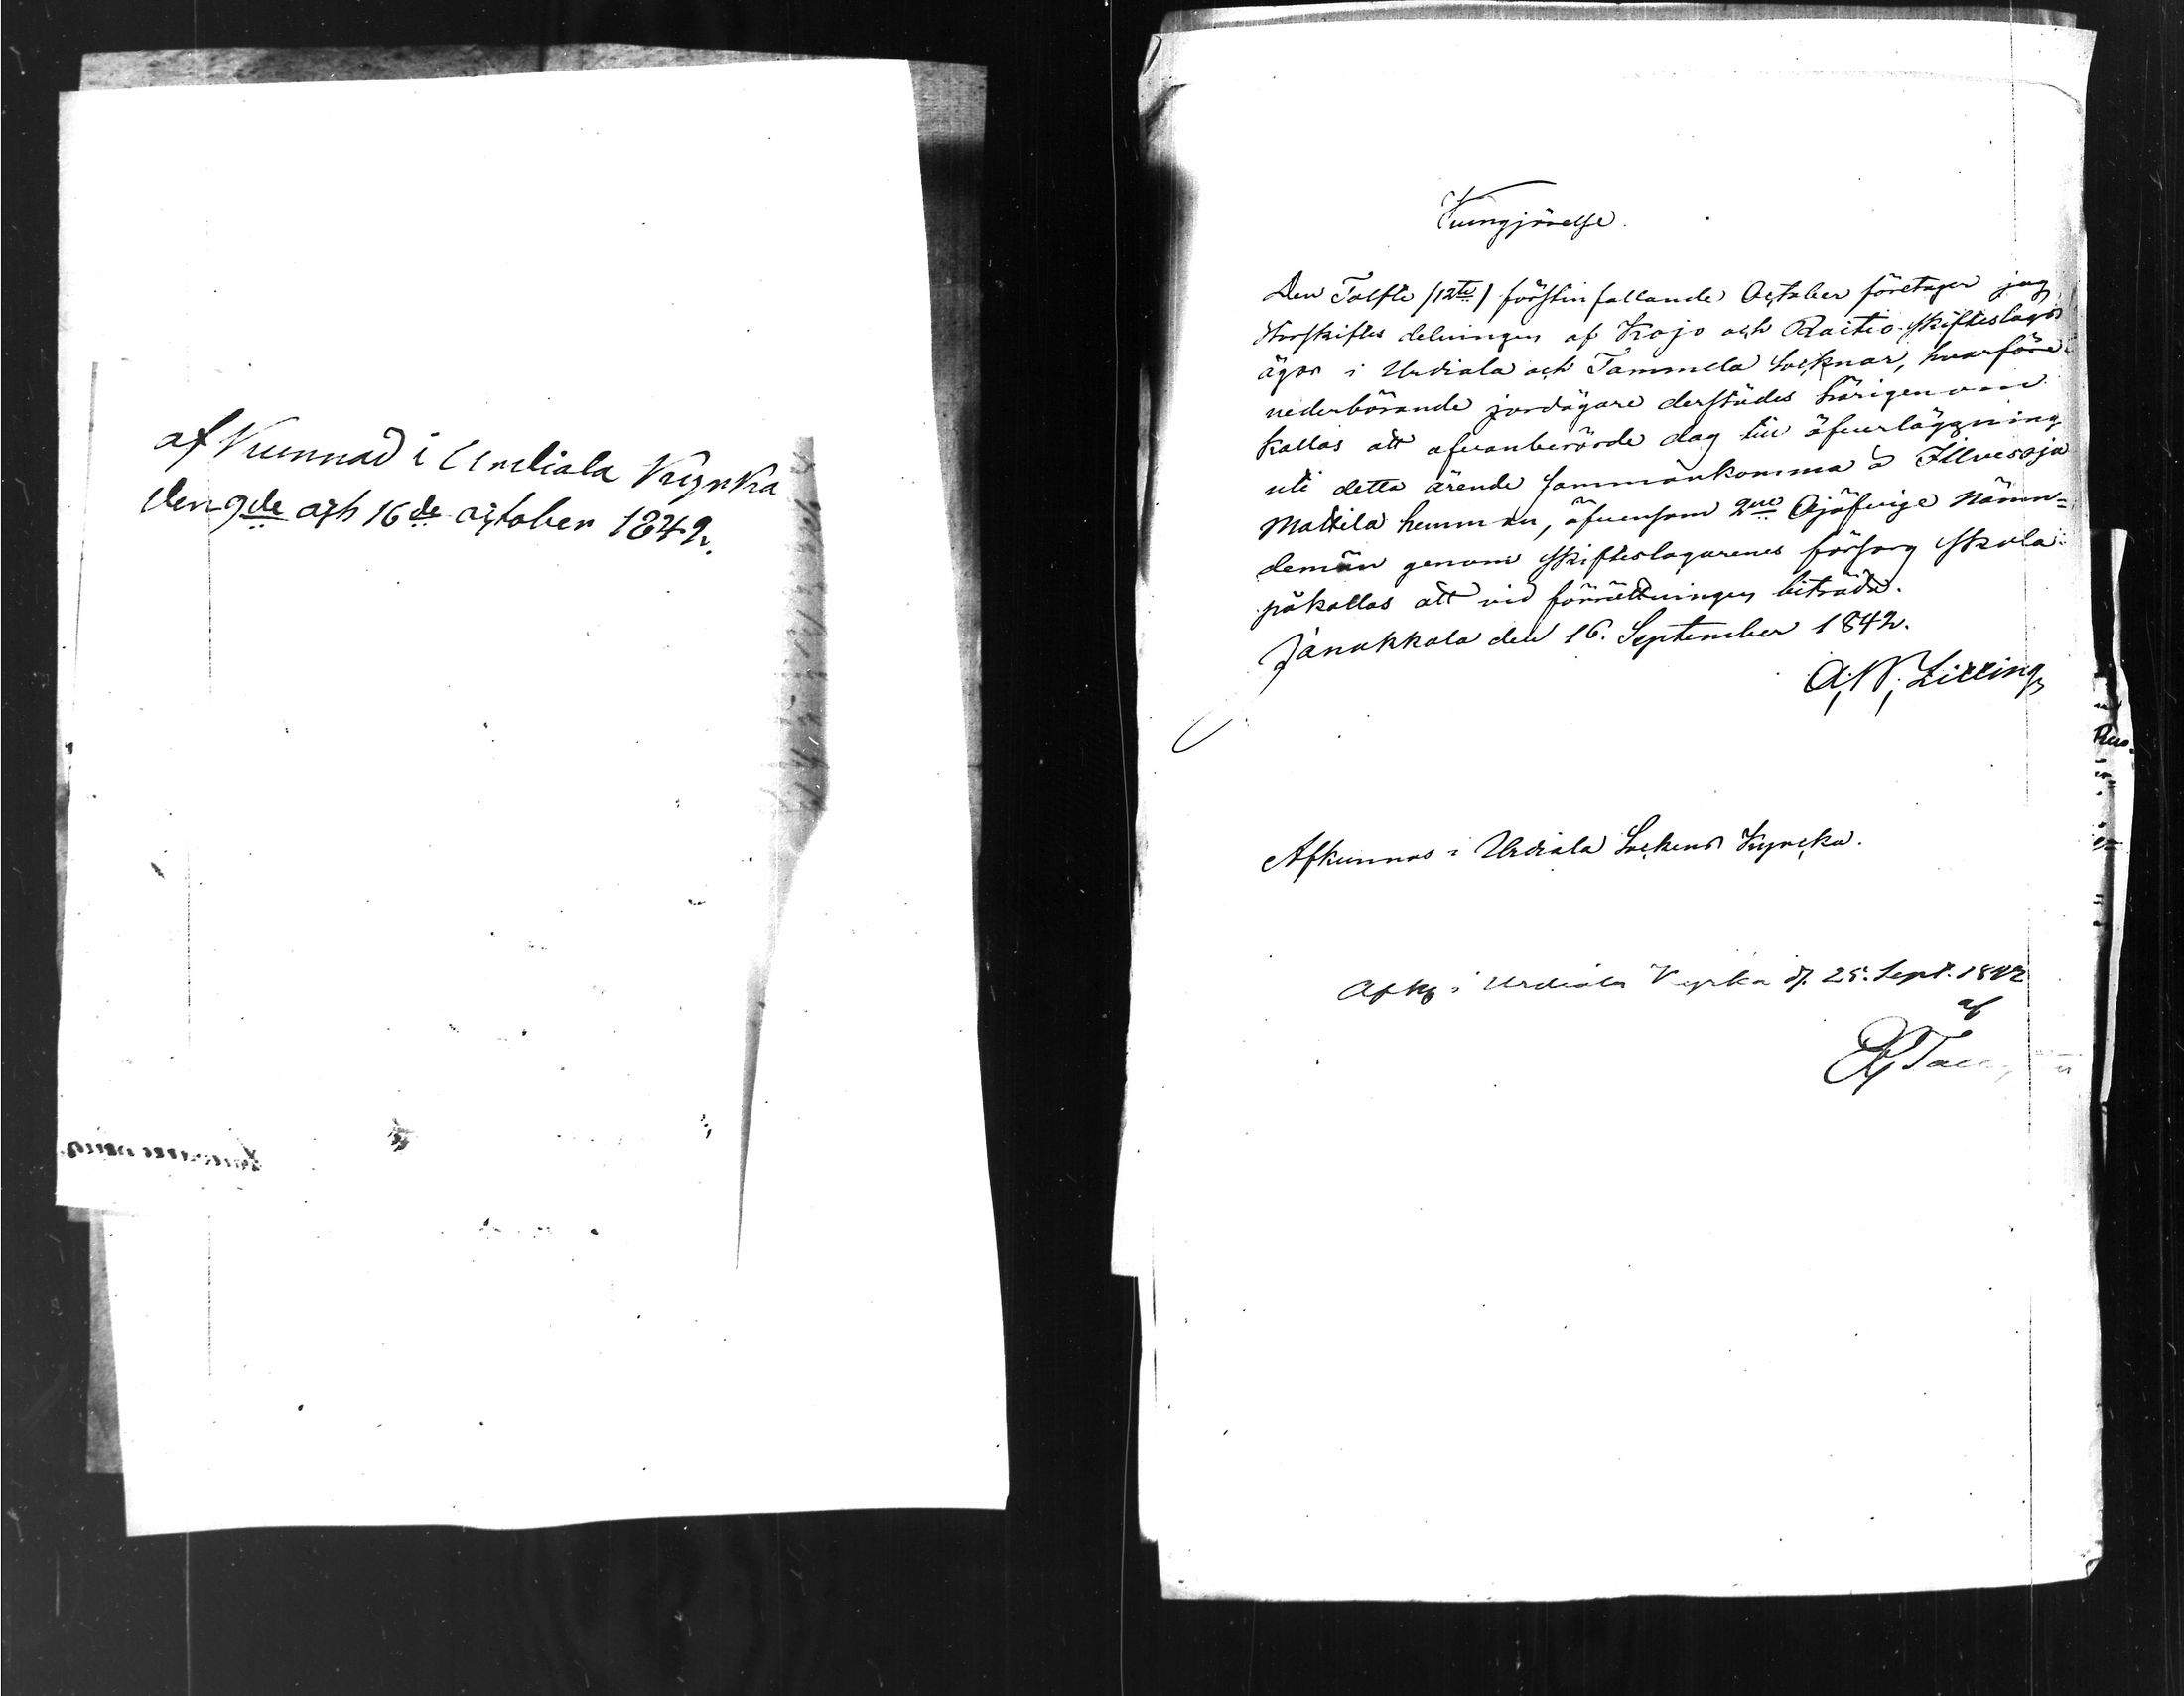 af Kunnad i Urdiala Kyrka
den 9de och 16de october 1842.
Kungjörelse.
Den Tolfte /12te/ förstinfallande October företager jag
Storskiftes delningen af Kojo och Raitio skifteslags
ägor i Urdiala och Tammela Socknar, hvarföre
vederbörande jordägare derstädes härigenom
kallas att ofvanberörde dag till öfverläggning
uti detta ärende sammankomma å Illvesoja
Mattila hemman, äfvensom 2ne Ojäfvige Nämn=
demän genom skifteslagarenes försorg skola
påkallas att vid förrättningen biträda.
Janakkala den 16. September 1842.
Afkunnas i Urdiala Sockens Kyrcka.
Afk i Urdiala Kyrka d. 25. Sept. 1842
af